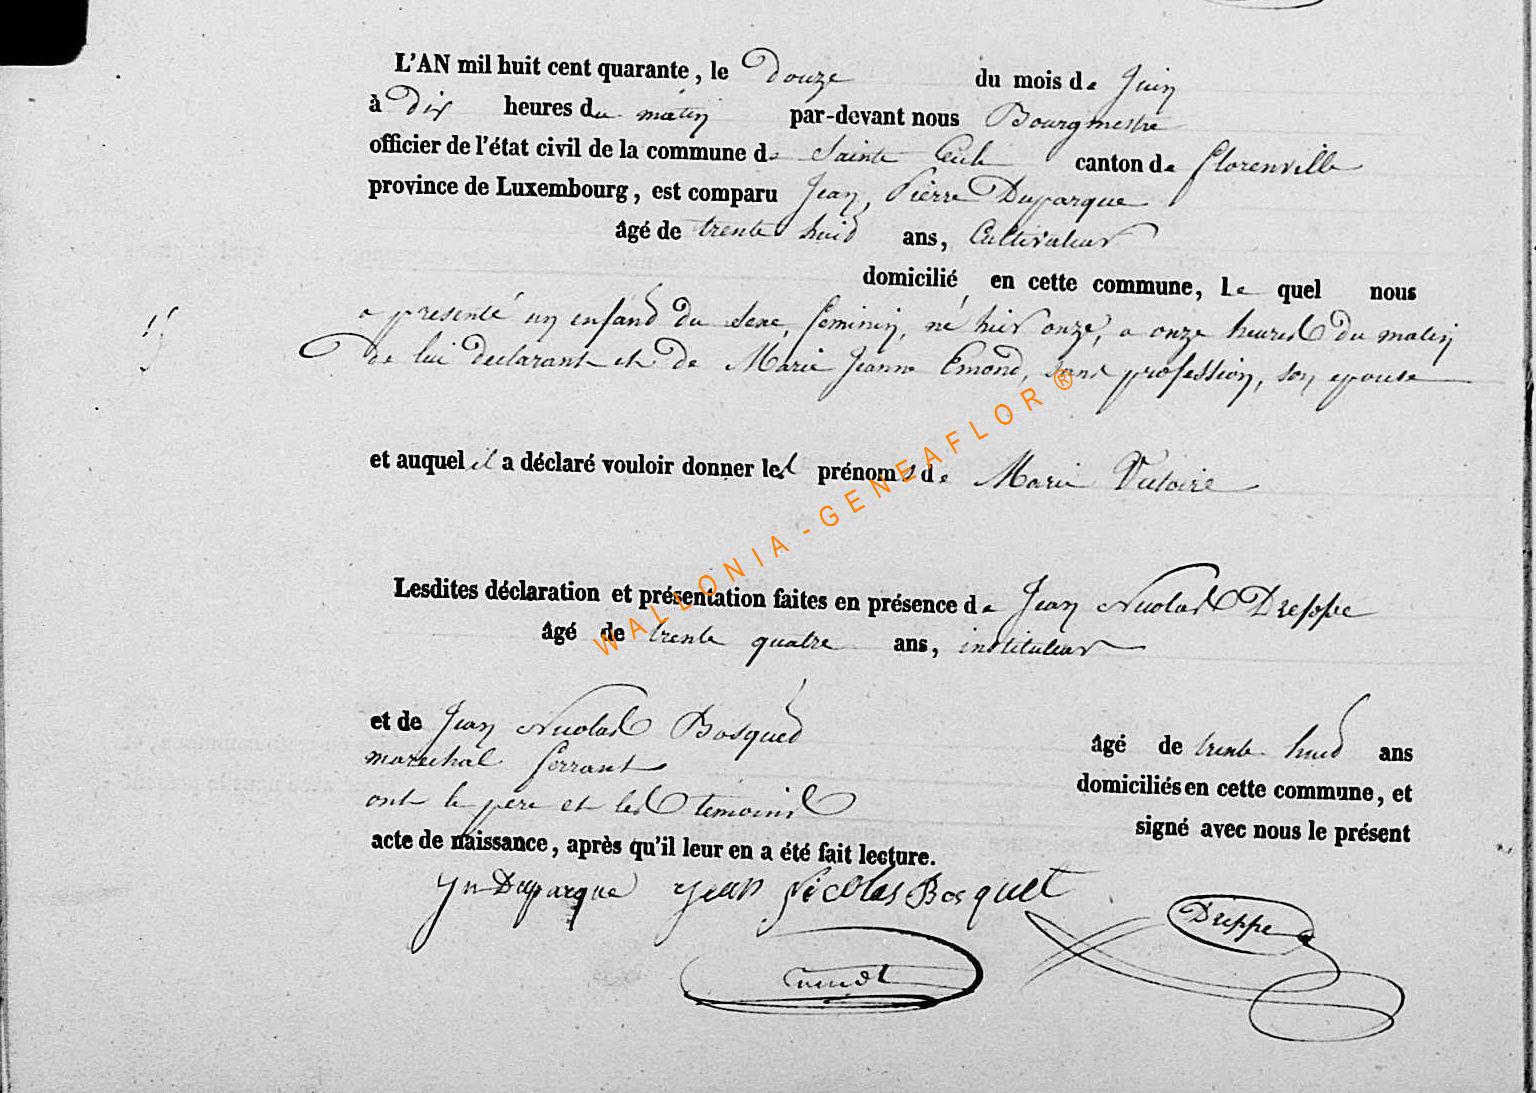 L'AN mil huit cent quarante, le Douze du mois de Juin
à Dix heures du matin par-devant nous Bourgmestre
officier de l'état civil de la commune de Sainte Cécile canton de florenville
province de Luxembourg, est comparu Jean, Pierre Duparque
âgé de trente huid ans, Cultivateur
domicilié en cette commune, Le quel nous
a presenté un enfand du sexe, feminin, né hier onze, a onze heures du matin
de lui declarant et de Marie Jeanne Emond, sans profession, son epouse
et auquel il a déclaré vouloir donner les prénoms de Marie Victoire
WALLONIA - GENEAFLOR ®
Lesdites déclaration et présentation faites en présence de Jean Nicolas Dreppe
âgé de trente quatre ans, instituteur
et de Jean Nicolas Bosqued âgé de trente huid ans
marechal ferrant domiciliés en cette commune, et
ont le pere et les temoins signé avec nous le présent
acte de naissance, après qu'il leur en a été fait lecture.
Jn Duparque Jean Nicolas Bosquet Dreppe